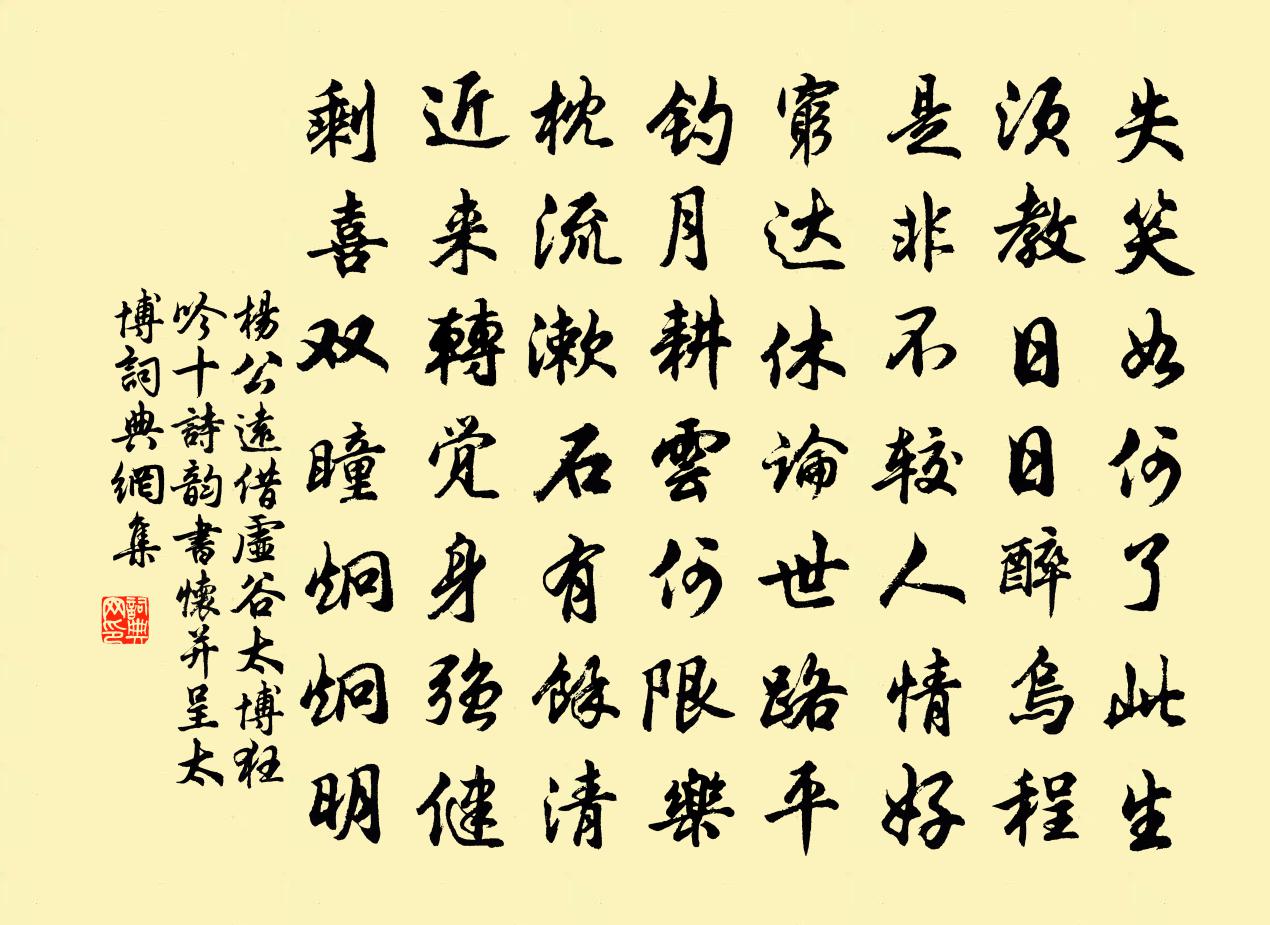 失笑如何了此生
须教日日醉烏程
是非不较人情好
窮达休論世路平
钓月耕雲何限樂
枕流漱石有餘清
近来轉觉身强健
剩喜双瞳炯炯明
楊公遠借虛谷太博狂
吟十詩韵書懷并呈太
博詞典網集
詞典
网印